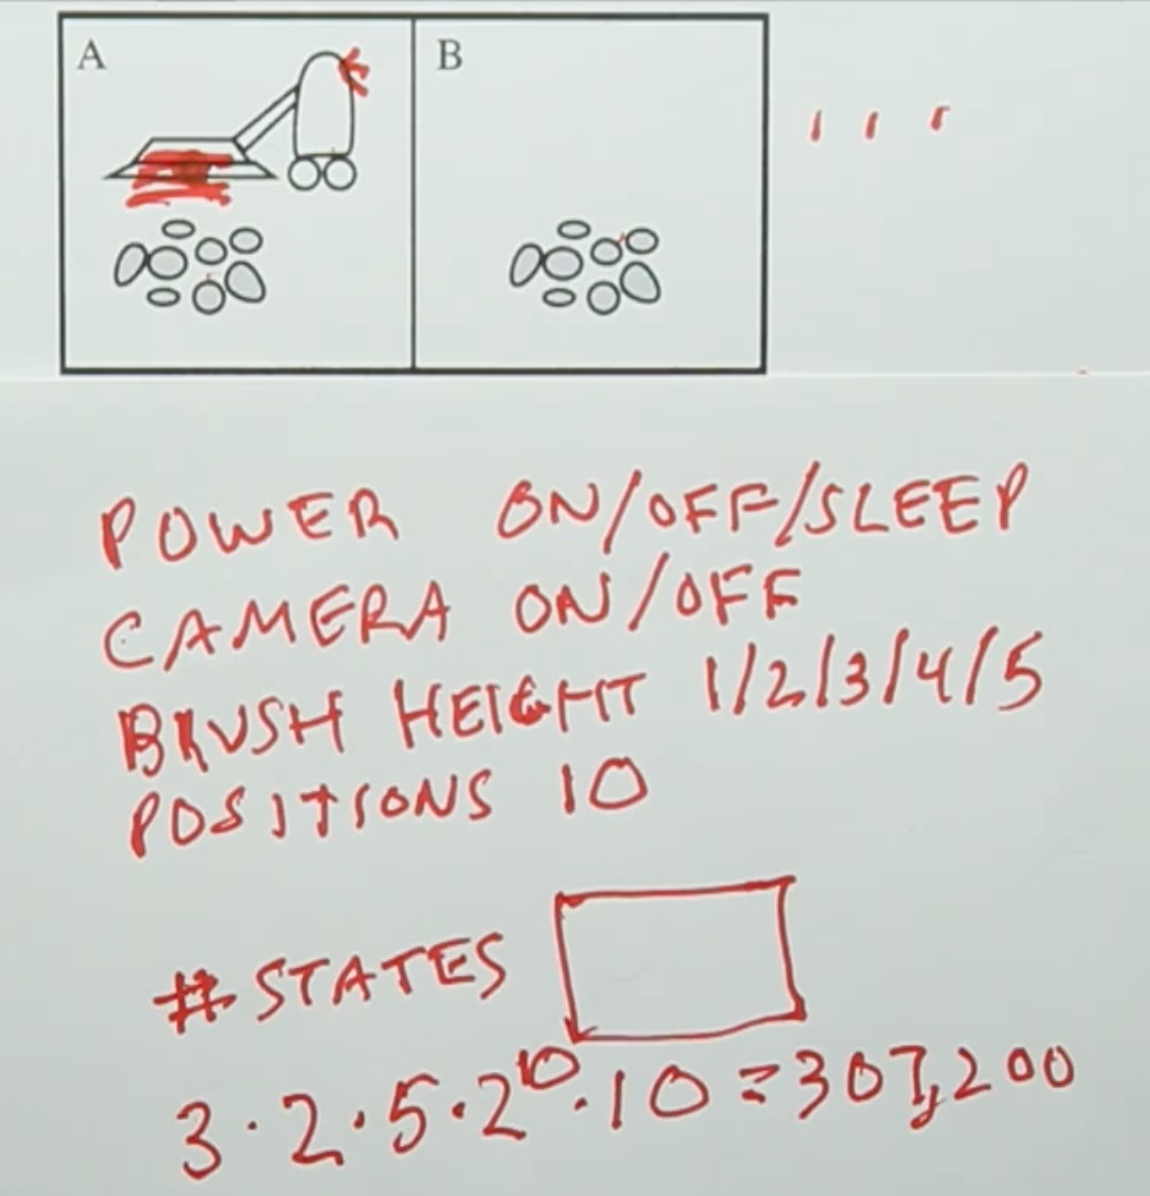 A B
POWER ON/OFF/SLEEP
CAMERA ON/OFF
BRUSH HEIGHT 1/2/3/4/5
POSITIONS 10
# STATES
3·2·5·2¹⁰·10=307,200